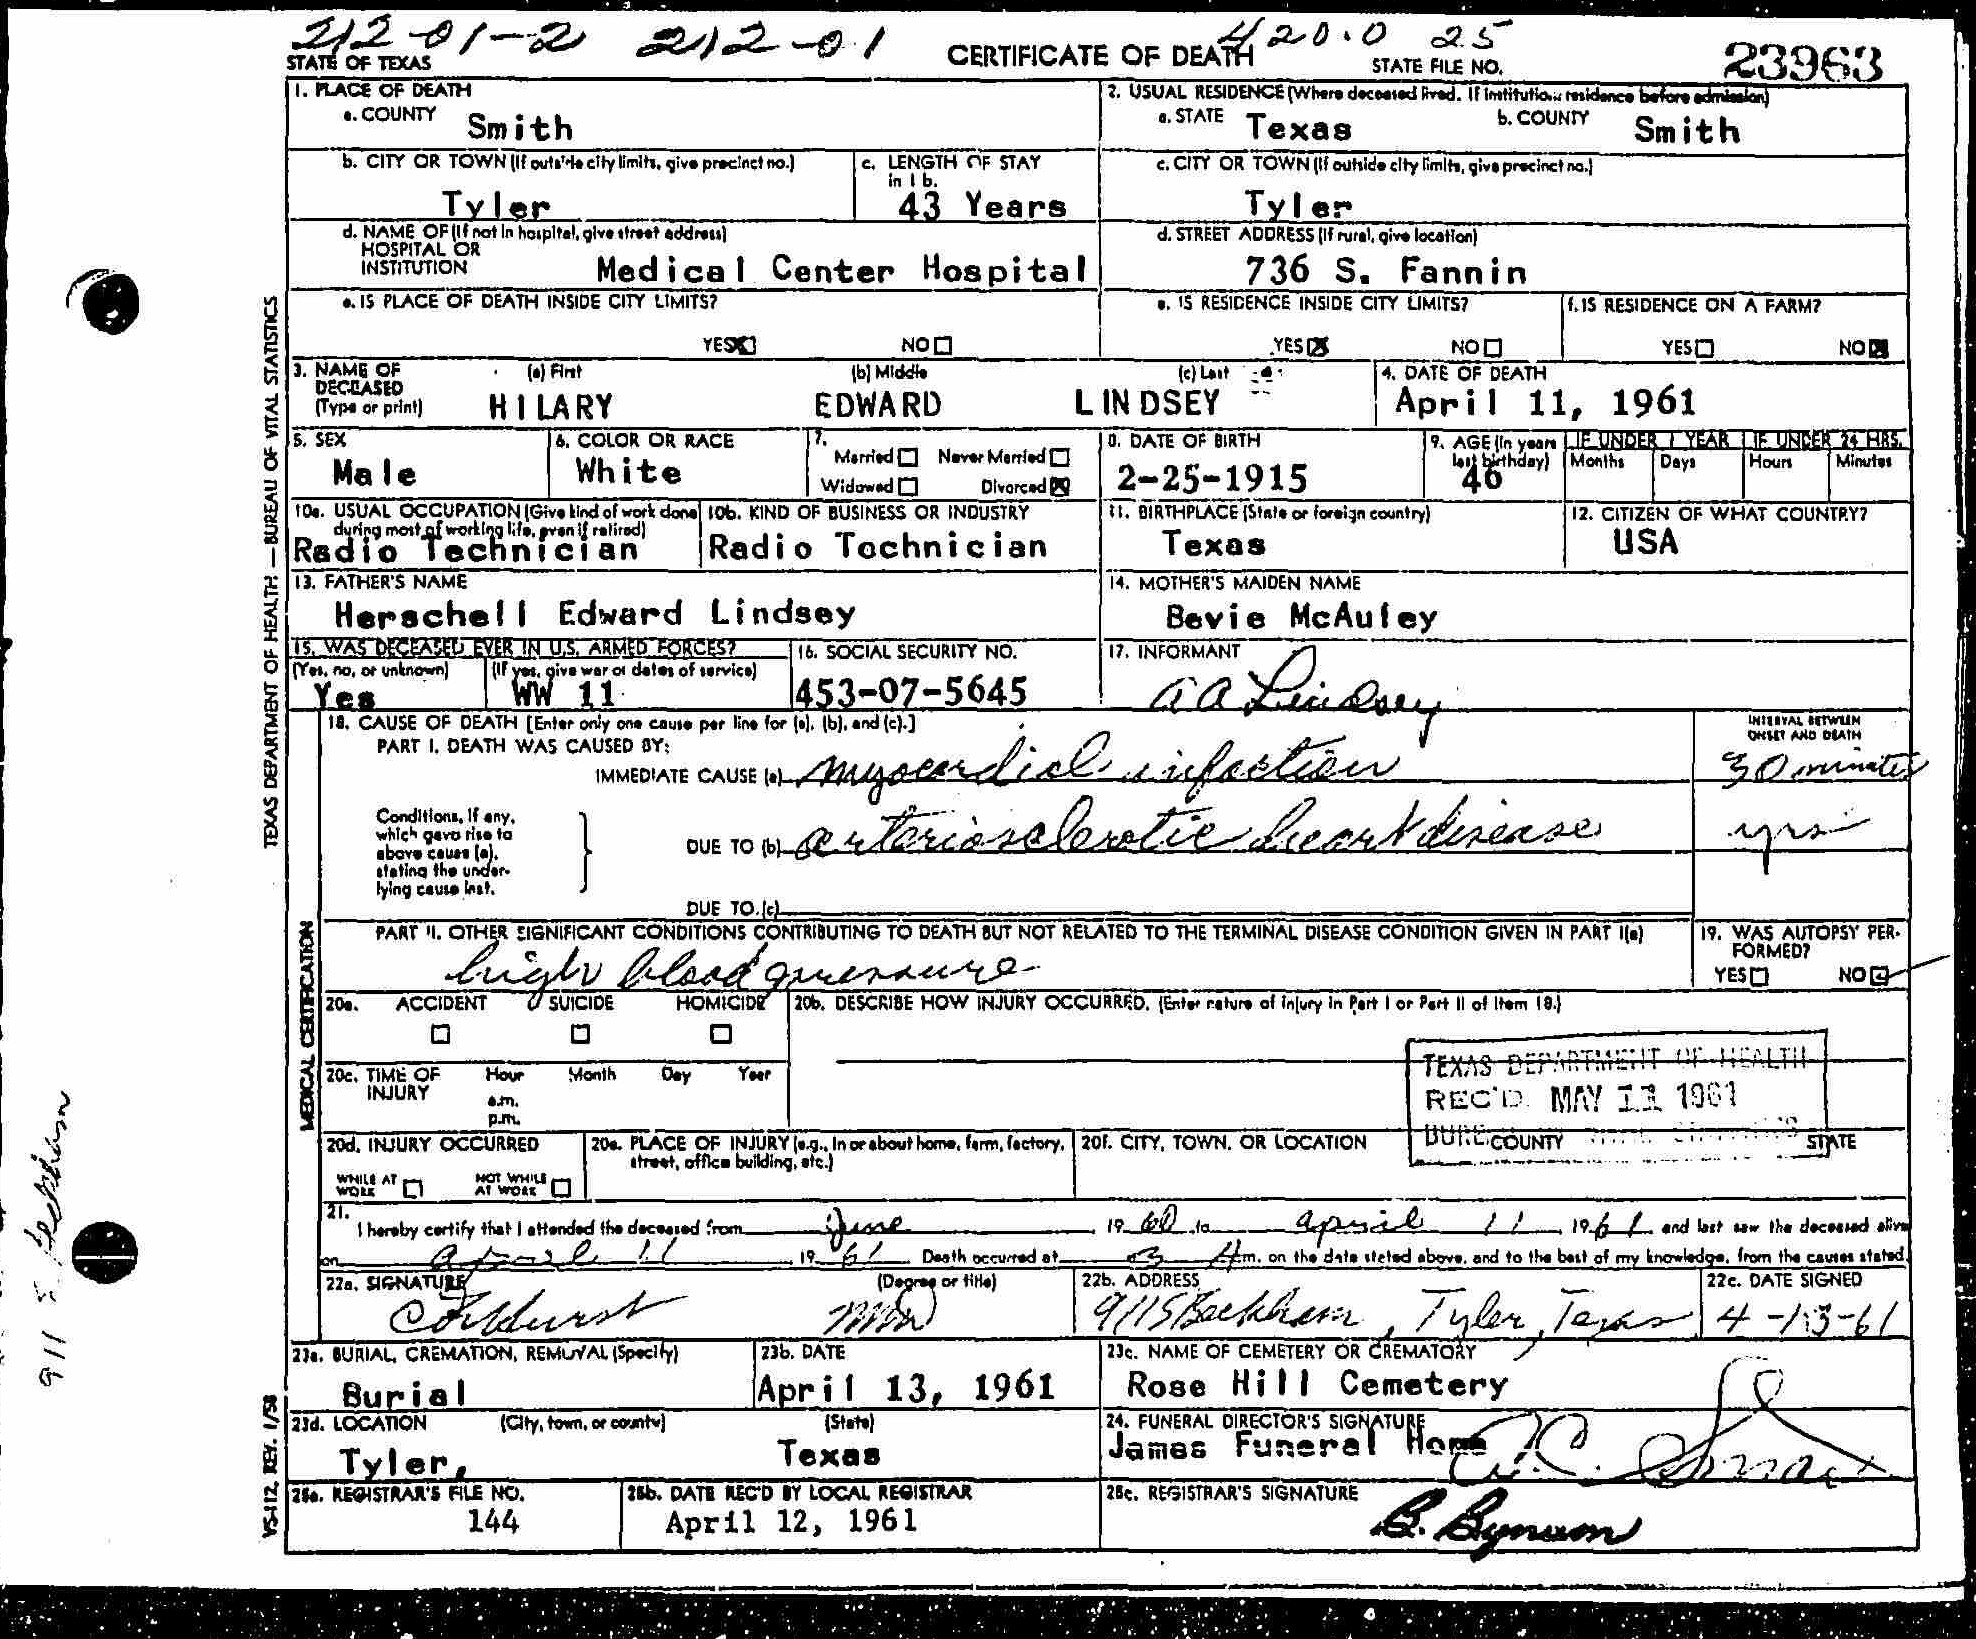 212-01-2 212-01 420.0 25
STATE OF TEXAS CERTIFICATE OF DEATH STATE FILE NO. 23963
1. PLACE OF DEATH
a. COUNTY Smith
2. USUAL RESIDENCE (Where deceased lived. If institution: residence before admission)
a. STATE Texas b. COUNTY Smith
b. CITY OR TOWN (If outside city limits, give precinct no.) Tyler
c. LENGTH OF STAY in 1 b. 43 Years
c. CITY OR TOWN (If outside city limits, give precinct no.) Tyler
d. NAME OF (If not in hospital, give street address)
HOSPITAL OR
INSTITUTION Medical Center Hospital
d. STREET ADDRESS (If rural, give location)
736 S. Fannin
e. IS PLACE OF DEATH INSIDE CITY LIMITS?
YES NO
e. IS RESIDENCE INSIDE CITY LIMITS?
YES NO
f. IS RESIDENCE ON A FARM?
YES NO
3. NAME OF DECEASED (Type or print)
(a) First HILARY (b) Middle EDWARD (c) Last LINDSEY
4. DATE OF DEATH
April 11, 1961
5. SEX
Male
6. COLOR OR RACE
White
7. Married Never Married
Widowed Divorced
8. DATE OF BIRTH
2-25-1915
9. AGE (In years last birthday)
46
IF UNDER 1 YEAR IF UNDER 24 HRS.
Months Days Hours Minutes
10a. USUAL OCCUPATION (Give kind of work done during most of working life, even if retired)
Radio Technician
10b. KIND OF BUSINESS OR INDUSTRY
Radio Tochnician
11. BIRTHPLACE (State or foreign country)
Texas
12. CITIZEN OF WHAT COUNTRY?
USA
13. FATHER'S NAME
Herschell Edward Lindsey
14. MOTHER'S MAIDEN NAME
Bevie McAuley
15. WAS DECEASED EVER IN U.S. ARMED FORCES?
(Yes, no, or unknown) (If yes, give war or dates of service)
Yes WW 11
16. SOCIAL SECURITY NO.
453-07-5645
17. INFORMANT
A A Lindsey
18. CAUSE OF DEATH [Enter only one cause per line for (a), (b), and (c).]
PART I. DEATH WAS CAUSED BY:
INTERVAL BETWEEN ONSET AND DEATH
IMMEDIATE CAUSE (a) myocardial infaction 30 minutes
Conditions, if any,
which gave rise to
above cause (a),
stating the under-
lying cause last.
DUE TO (b) arteriosclerotic heart disease yrs
DUE TO (c)
PART II. OTHER SIGNIFICANT CONDITIONS CONTRIBUTING TO DEATH BUT NOT RELATED TO THE TERMINAL DISEASE CONDITION GIVEN IN PART I(a)
high blood pressure
19. WAS AUTOPSY PER-
FORMED?
YES NO
20a. ACCIDENT SUICIDE HOMICIDE
20b. DESCRIBE HOW INJURY OCCURRED. (Enter nature of injury in Part I or Part II of Item 18.)
20c. TIME OF INJURY Hour Month Day Year
a.m.
p.m.
TEXAS DEPARTMENT OF HEALTH
REC'D MAY 11 1961
20d. INJURY OCCURRED
WHILE AT WORK NOT WHILE AT WORK
20e. PLACE OF INJURY (e.g., in or about home, farm, factory, street, office building, etc.)
20f. CITY, TOWN, OR LOCATION COUNTY STATE
21. I hereby certify that I attended the deceased from June 19 60 to April 11 1961 and last saw the deceased alive
on April 11 19 61 Death occurred at 3 A m. on the date stated above, and to the best of my knowledge, from the causes stated.
22a. SIGNATURE (Degree or title) MD
22b. ADDRESS
911 S Beckham, Tyler, Texas
22c. DATE SIGNED
4-13-61
23a. BURIAL, CREMATION, REMOVAL (Specify)
Burial
23b. DATE
April 13, 1961
23c. NAME OF CEMETERY OR CREMATORY
Rose Hill Cemetery
23d. LOCATION (City, town, or county) (State)
Tyler, Texas
24. FUNERAL DIRECTOR'S SIGNATURE
James Funeral Home
25a. REGISTRAR'S FILE NO.
144
25b. DATE REC'D BY LOCAL REGISTRAR
April 12, 1961
25c. REGISTRAR'S SIGNATURE
B. Bynum
TEXAS DEPARTMENT OF HEALTH — BUREAU OF VITAL STATISTICS
MEDICAL CERTIFICATION
VS-112, REV. 1/58
911 S. Beckham